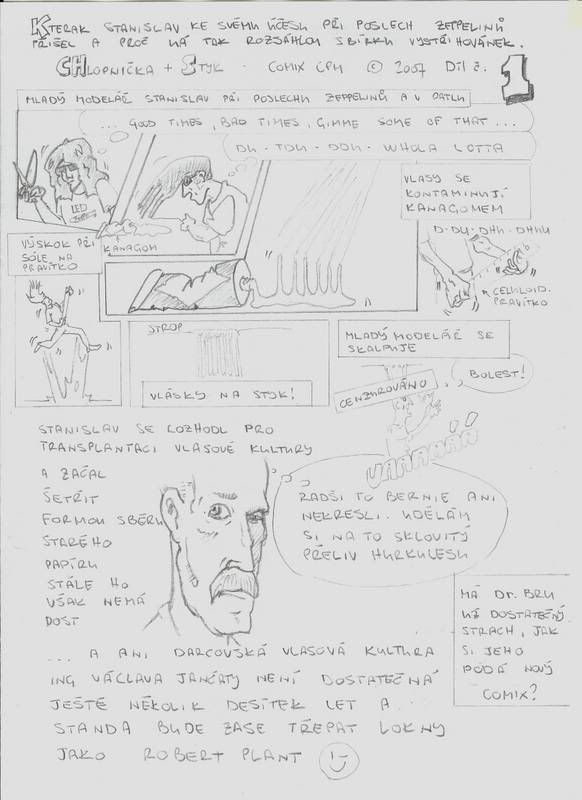 KTERAK STANISLAV KE SVÉMU ÚČESU PŘI POSLECH ZEPPELINŮ
PŘIŠEL A PROČ MÁ TAK ROZSÁHLOU SBÍRKU VYSTŘIHOVÁNEK.
CHLOPNIČKA + STYK · COMIX CPM © 2007 DÍL Č. 1
MLADÝ MODELÁŘ STANISLAV PŘI POSLECHU ZEPPELINŮ A V PATLU
... GOOD TIMES, BAD TIMES, GIMME SOME OF THAT ...
DU - TDU - DDU - WHOLA LOTTA
LED
KANAGOM
VLASY SE
KONTAMINUJÍ
KANAGOMEM
VÝSKOK PŘI
SÓLE NA
PRAVÍTKO
D-DU-DHU-DHUU
CELULOID.
PRAVÍTKO
STROP
VLÁSKY NA STYK!
MLADÝ MODELÁŘ SE
SKALPUJE
CENZUROVÁNO
BOLEST!
UAAÁÁÁ
STANISLAV SE ROZHODL PRO
TRANSPLANTACI VLASOVÉ KULTURY
A ZAČAL
ŠETŘIT
FORMOU SBĚRU
STARÉHO
PAPÍRU
STÁLE HO
VŠAK NEMÁ
DOST
RADŠI TO BERNIE ANI
NEKRESLI. UDĚLÁM
SI NA TO SKLOVITÝ
PŘELIV HURKULESU
MÁ Dr. BRU
UŽ DOSTATEČNÝ
STRACH, JAK
SI JEHO
PODÁ NOVÝ
COMIX?
... A ANI DARCOVSKÁ VLASOVÁ KULTURA
ING VÁCLAVA JANČÁTY NENÍ DOSTATEČNÁ
JEŠTĚ NĚKOLIK DESÍTEK LET A ..
STANDA BUDE ZASE TŘEPAT LOKNY
JAKO ROBERT PLANT